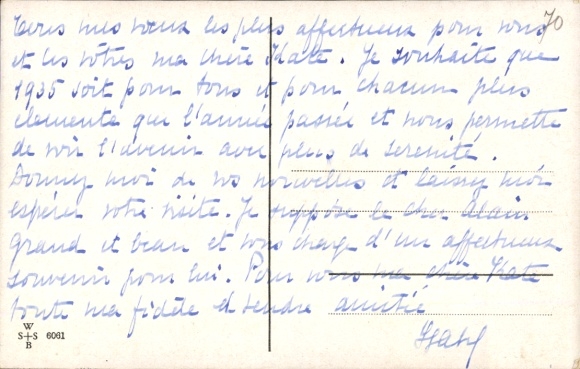 Tous mes vœux les plus affectueux pour vous
et les vôtres ma chère Kate. Je souhaite que
1935 soit pour tous et pour chacun plus
clemente que l'année passée et nous permette
de voir l'avenir avec plus de serenité.
Donnez moi de vos nouvelles et laissez moi
espérer votre visite. Je suppose le cher Alain
grand et beau et vous charge d'un affectueux
souvenir pour lui. Pour vous ma chère Kate
toute ma fidèle et tendre amitié
70
W
S+S 6061
B